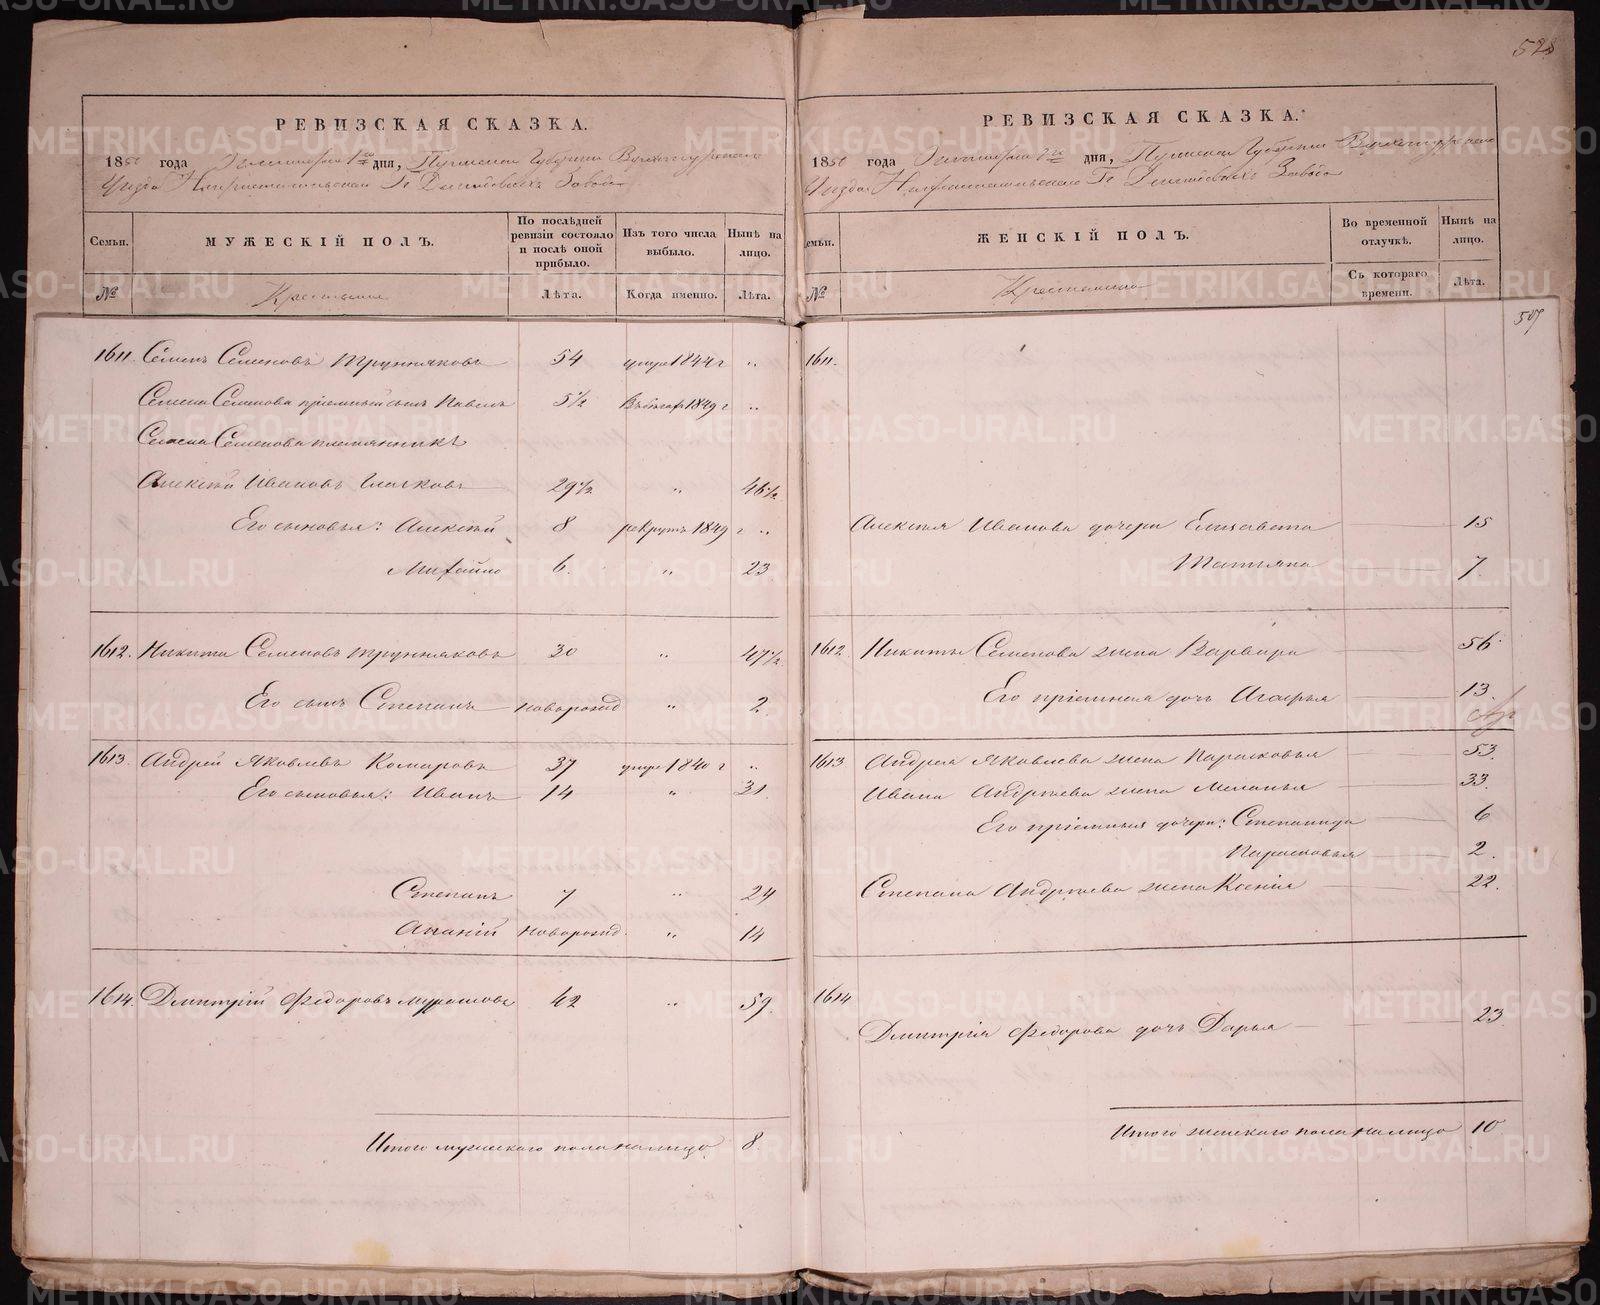 528
РЕВИЗСКАЯ СКАЗКА.
1850 года дня, Пермской Губерніи Верхотурскаго
Уѣзда Нижнетагильскаго Гг Демидовыхъ Завода
Семьи.
МУЖЕСКІЙ ПОЛЪ.
По послѣдней ревизіи состояло и послѣ оной прибыло.
Изъ того числа выбыло.
Нынѣ на лицо.
№
Крестьяне
Лѣта.
Когда именно.
Лѣта.
1611. Семенъ Семеновъ Трунняковъ 54 умре 1844 г „
Семена Семенова пріемный сынъ Павелъ 5½ 1849 г „
Семена Семенова племянникъ
Алексѣй Ивановъ 29½ „ 46½
Его сыновья: Алексѣй 8 рекрутъ 1849 г „
Михайло 6. „ 23
1612. Никита Семеновъ Трунняковъ 30 „ 47½
Его сынъ Степанъ новорожд „ 2.
1613. Андрей Яковлевъ Комаровъ 37 умре 1840 г „
Его сыновья: Иванъ 14 „ 31.
Степанъ 7 „ 24
Ананій новорожд. „ 14
1614. Дмитрій Федоровъ Мурашовъ 42 „ 59.
Итого мужескаго пола налицо 8
РЕВИЗСКАЯ СКАЗКА.
1850 года дня, Пермской Губерніи Верхотурскаго
Уѣзда Нижнетагильскаго Гг Демидовыхъ Завода
Семьи.
ЖЕНСКІЙ ПОЛЪ.
Во временной отлучкѣ.
Нынѣ на лицо.
№
Крестьянки
Съ котораго времени.
Лѣта.
507
1611.
Алексѣя Иванова дочери Елисавета 15
Татьяна 7.
1612. Никиты Семенова жена Варвара 56
Его пріемная дочь Агафья 13.
1613 Андрея Яковлева жена Парасковья 53.
Ивана Андреева жена Меланья 33.
Его пріемныя дочери: Степанида 6
Парасковья 2.
Степана Андреева жена Ксенія 22.
1614
Дмитрія Федорова дочь Дарья 23
Итого женскаго пола налицо 10
METRIKI.GASO-URAL.RU